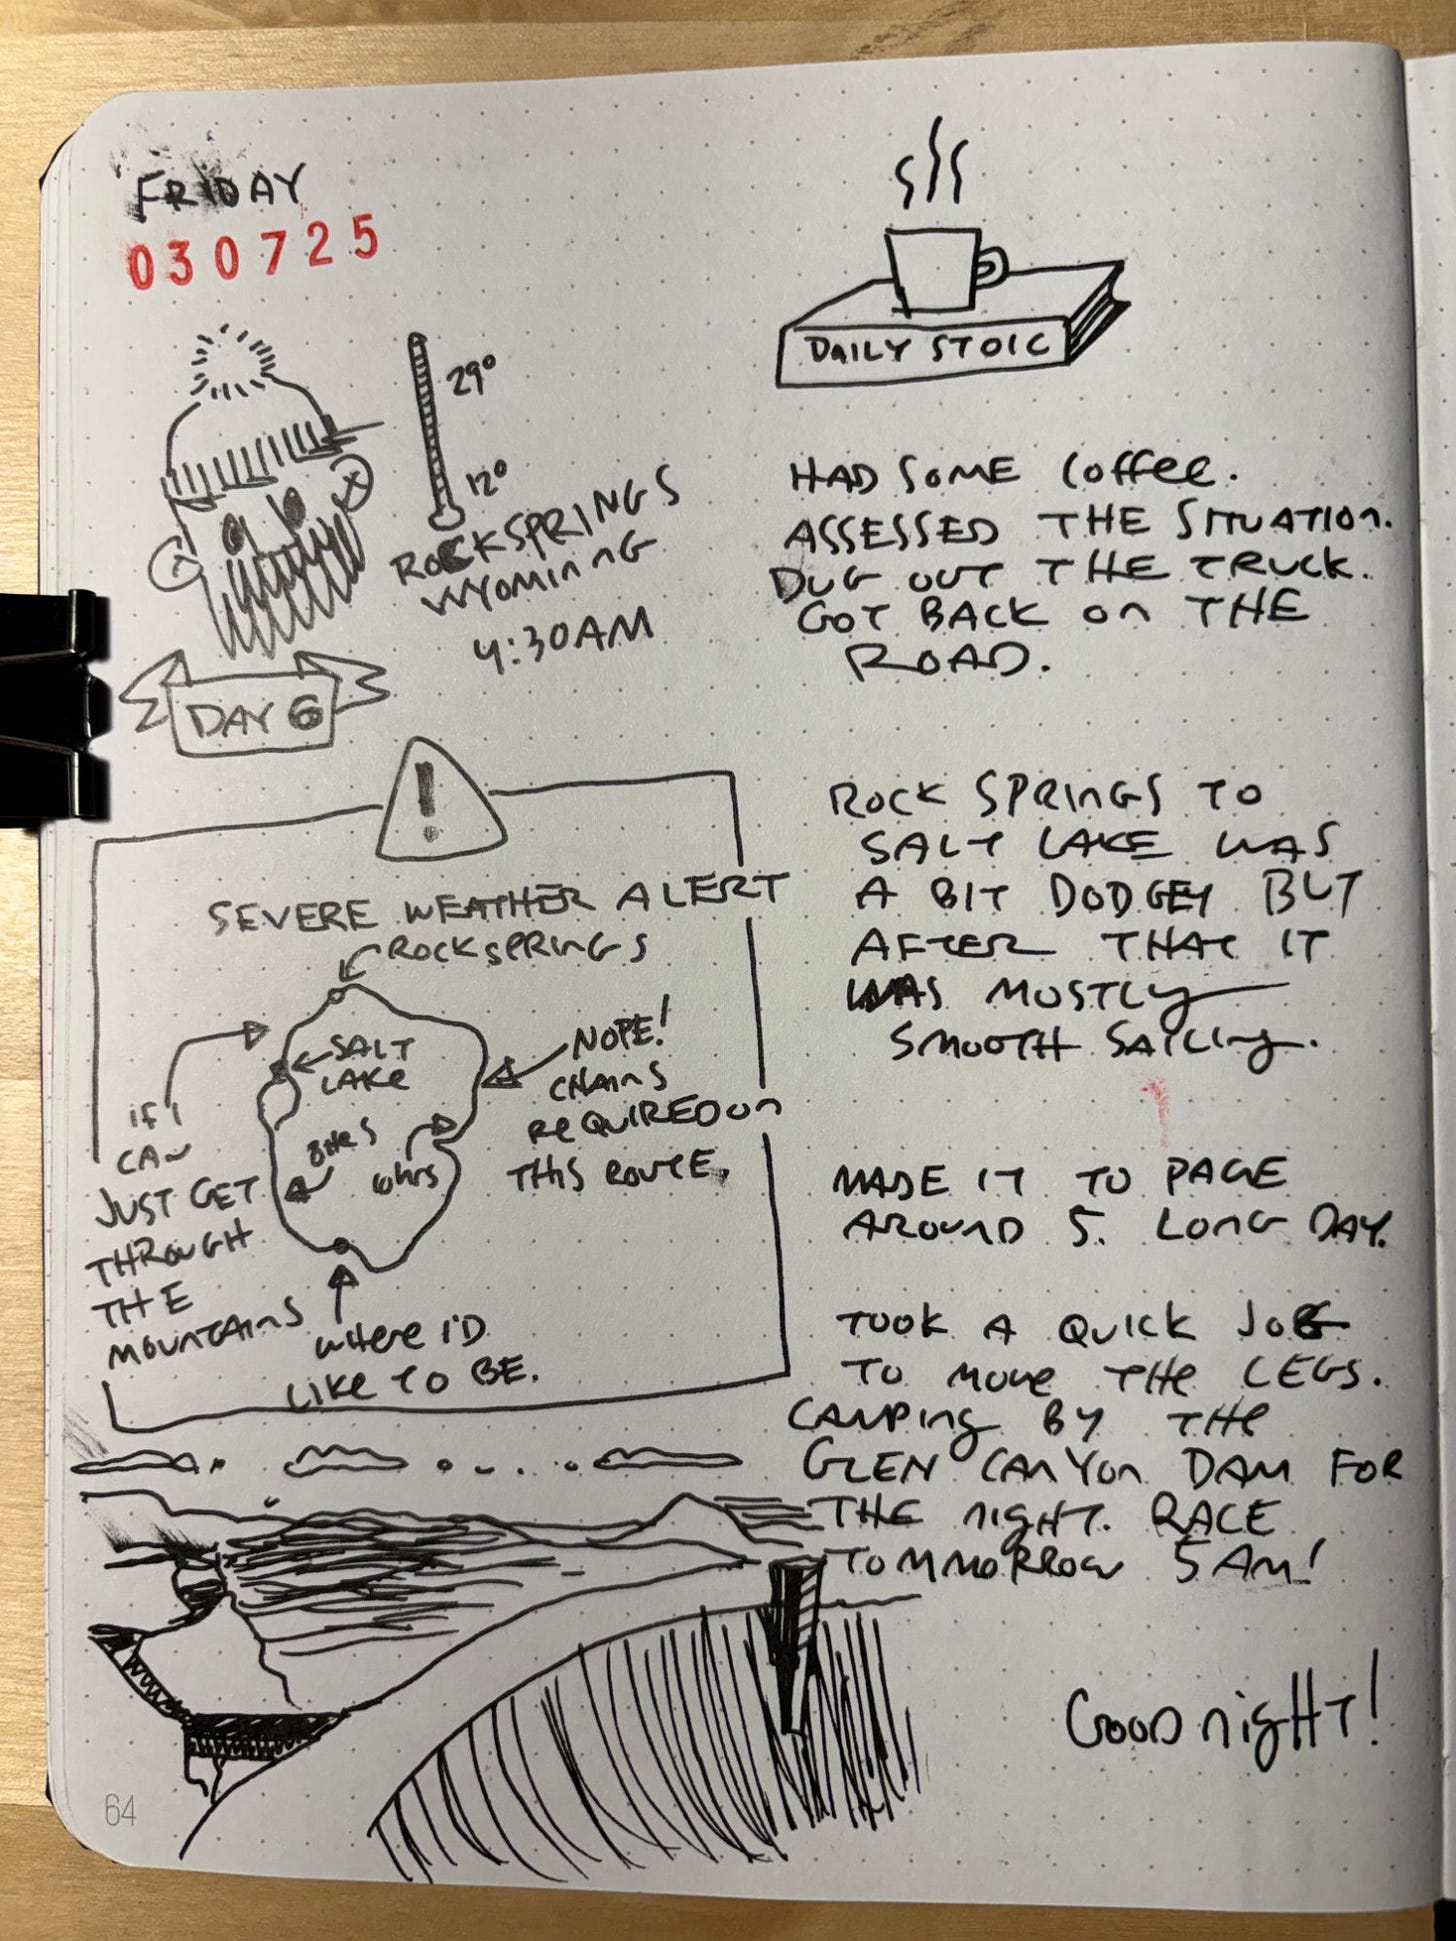 FRIDAY
030725
29°
12°
ROCKSPRINGS
WYOMING
4:30AM
DAY 6
!
SEVERE WEATHER ALERT
ROCKSPRINGS
SALT
LAKE
NOPE!
CHAINS
REQUIRED ON
THIS ROUTE,
IF I
CAN
JUST GET
THROUGH
THE
MOUNTAINS
8HRS
6HRS
WHERE I'D
LIKE TO BE.
64
DAILY STOIC
HAD SOME COFFEE.
ASSESSED THE SITUATION.
DUG OUT THE TRUCK.
GOT BACK ON THE
ROAD.
ROCK SPRINGS TO
SALT LAKE WAS
A BIT DODGEY BUT
AFTER THAT IT
WAS MOSTLY
SMOOTH SAILING.
MADE IT TO PAGE
AROUND 5. LONG DAY.
TOOK A QUICK JOG
TO MOVE THE LEGS.
CAMPING BY THE
GLEN CANYON DAM FOR
THE NIGHT. RACE
TOMMORROW 5AM!
GOODNIGHT!